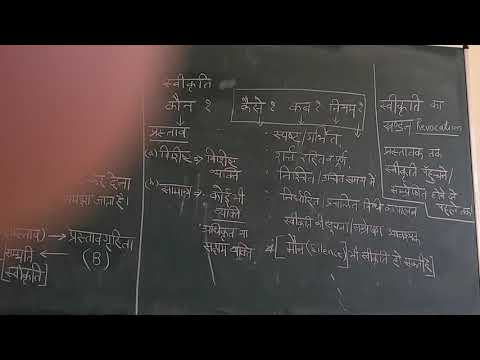 स्वीकृति
कौन ? कैसे ? कब ? नियम ?
प्रस्ताव
(a) विशिष्ट → विशिष्ट
व्यक्ति
(b) सामान्य → कोई भी
व्यक्ति
सक्षम व्यक्ति
स्पष्ट/गर्भित
शर्त रहित व पूर्ण
निश्चित/उचित समय में
निर्धारित/प्रचलित विधि का पालन
स्वीकृति की सूचना/
[मौन (Silence)] भी स्वीकृति हो सकती है]
स्वीकृति का
खण्डन Revocation
प्रस्तावक तक
स्वीकृति पहुंचने/
होने से
पहले तक
कर देना
समझा जाता है।
→ प्रस्ताव गृहिता
(B)
सम्मति
[स्वीकृति]